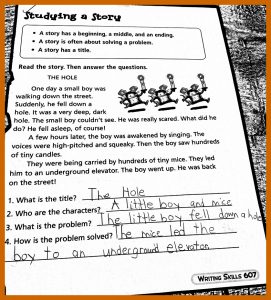 Studying a Story
• A story has a beginning, a middle, and an ending.
• A story is often about solving a problem.
• A story has a title.
Read the story. Then answer the questions.
THE HOLE
One day a small boy was
walking down the street.
Suddenly, he fell down a
hole. It was a very deep, dark
hole. The small boy couldn't see. He was really scared. What did he
do? He fell asleep, of course!
A few hours later, the boy was awakened by singing. The
voices were high-pitched and squeaky. Then the boy saw hundreds
of tiny candles.
They were being carried by hundreds of tiny mice. They led
him to an underground elevator. The boy went up. He was back
on the street!
1. What is the title? The Hole
2. Who are the characters? A little boy and mice
3. What is the problem? The little boy fell down a hole
4. How is the problem solved? The mice led the
boy to an underground elevator.
WRITING SKILLS 607